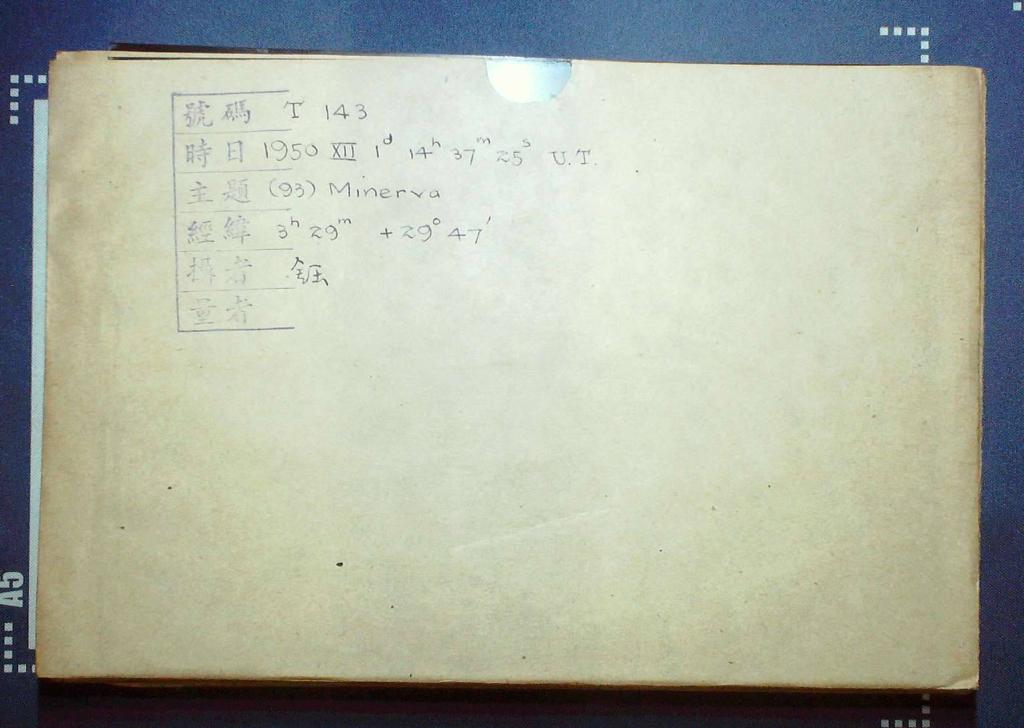 號碼 T 143
時日 1950 XII 1d 14h 37m 25s U.T.
主題 (93) Minerva
經緯 3h 29m +29° 47'
攝者 鈺
量者
A5